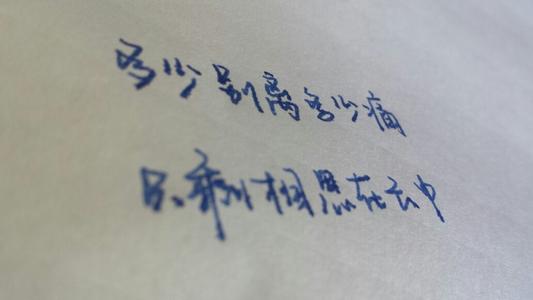 多少别离多少痛
只剩相思在云中